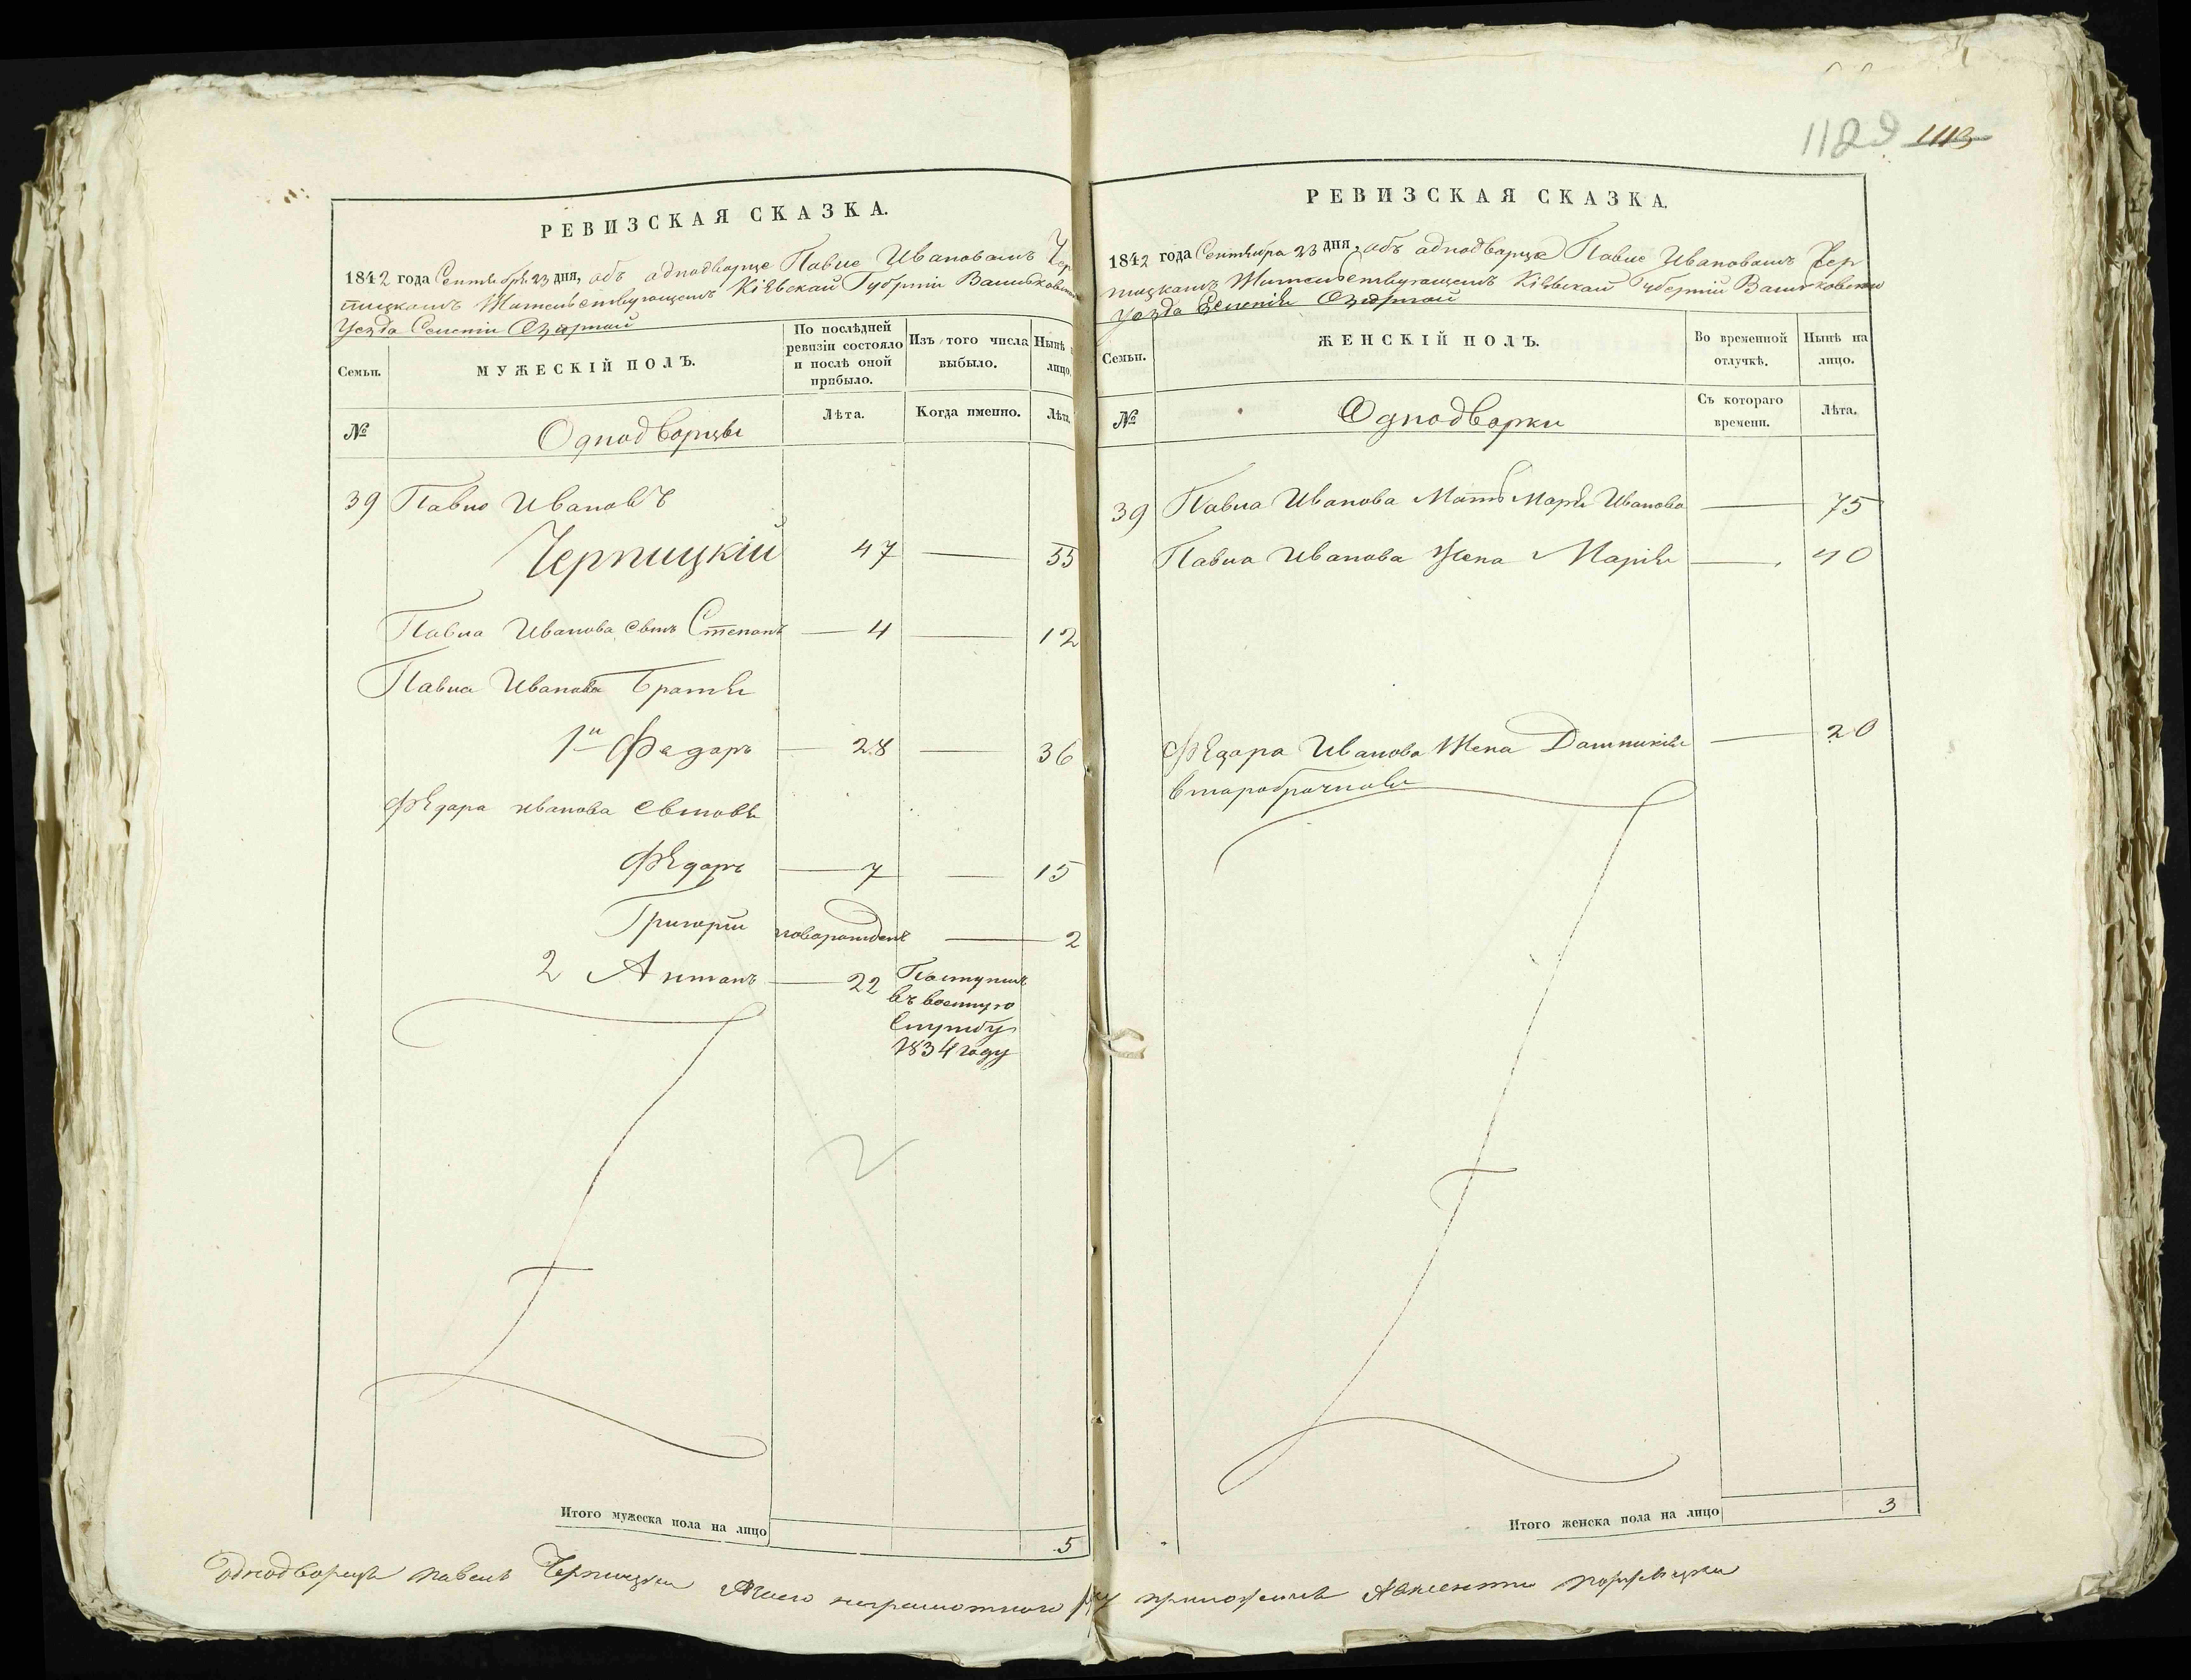 1129 1113
РЕВИЗСКАЯ СКАЗКА.
1842 года Сентября 23 дня, объ однодворце Павле Ивановомъ Чер
ницкомъ Жительствующемъ Кіевской Губерніи Васильковскаго
Уезда Селеніи Озерной
Семьи.
МУЖЕСКІЙ ПОЛЪ.
По послѣдней
ревизіи состояло
и послѣ оной
прибыло.
Изъ того числа
выбыло.
Нынѣ
лицо,
№
Однодворцы
Лѣта.
Когда именно.
Лѣта,
39 Павло Ивановъ
Черницкій 47 — 55
Павла Иванова сынъ Степанъ — 4 — 12
Павла Иванова Братья
1й Федоръ — 28 — 36
Федора Иванова сыновья
Федоръ — 7 — 15
Григорій новорожденъ — 2
2 Антонъ — 22 Поступилъ
въ военную
Службу
1834 году
Итого мужеска пола на лицо
5
РЕВИЗСКАЯ СКАЗКА.
1842 года Сентября 23 дня, объ однодворце Павле Ивановомъ Чер
ницкомъ Жительствующемъ Кіевской Губерніи Васильковскаго
Уезда Селеніи Озерной
Семьи.
ЖЕНСКІЙ ПОЛЪ.
Во временной
отлучкѣ.
Нынѣ на
лицо.
№
Однодворки
Съ котораго
времени.
Лѣта.
39 Павла Иванова Мать Марья Иванова — 75
Павла Иванова Жена Марія — 40
Федора Иванова Жена
— 20
второбрачная
Итого женска пола на лицо
3
однодворецъ Павелъ Черницкій неграмотного руку приложилъ